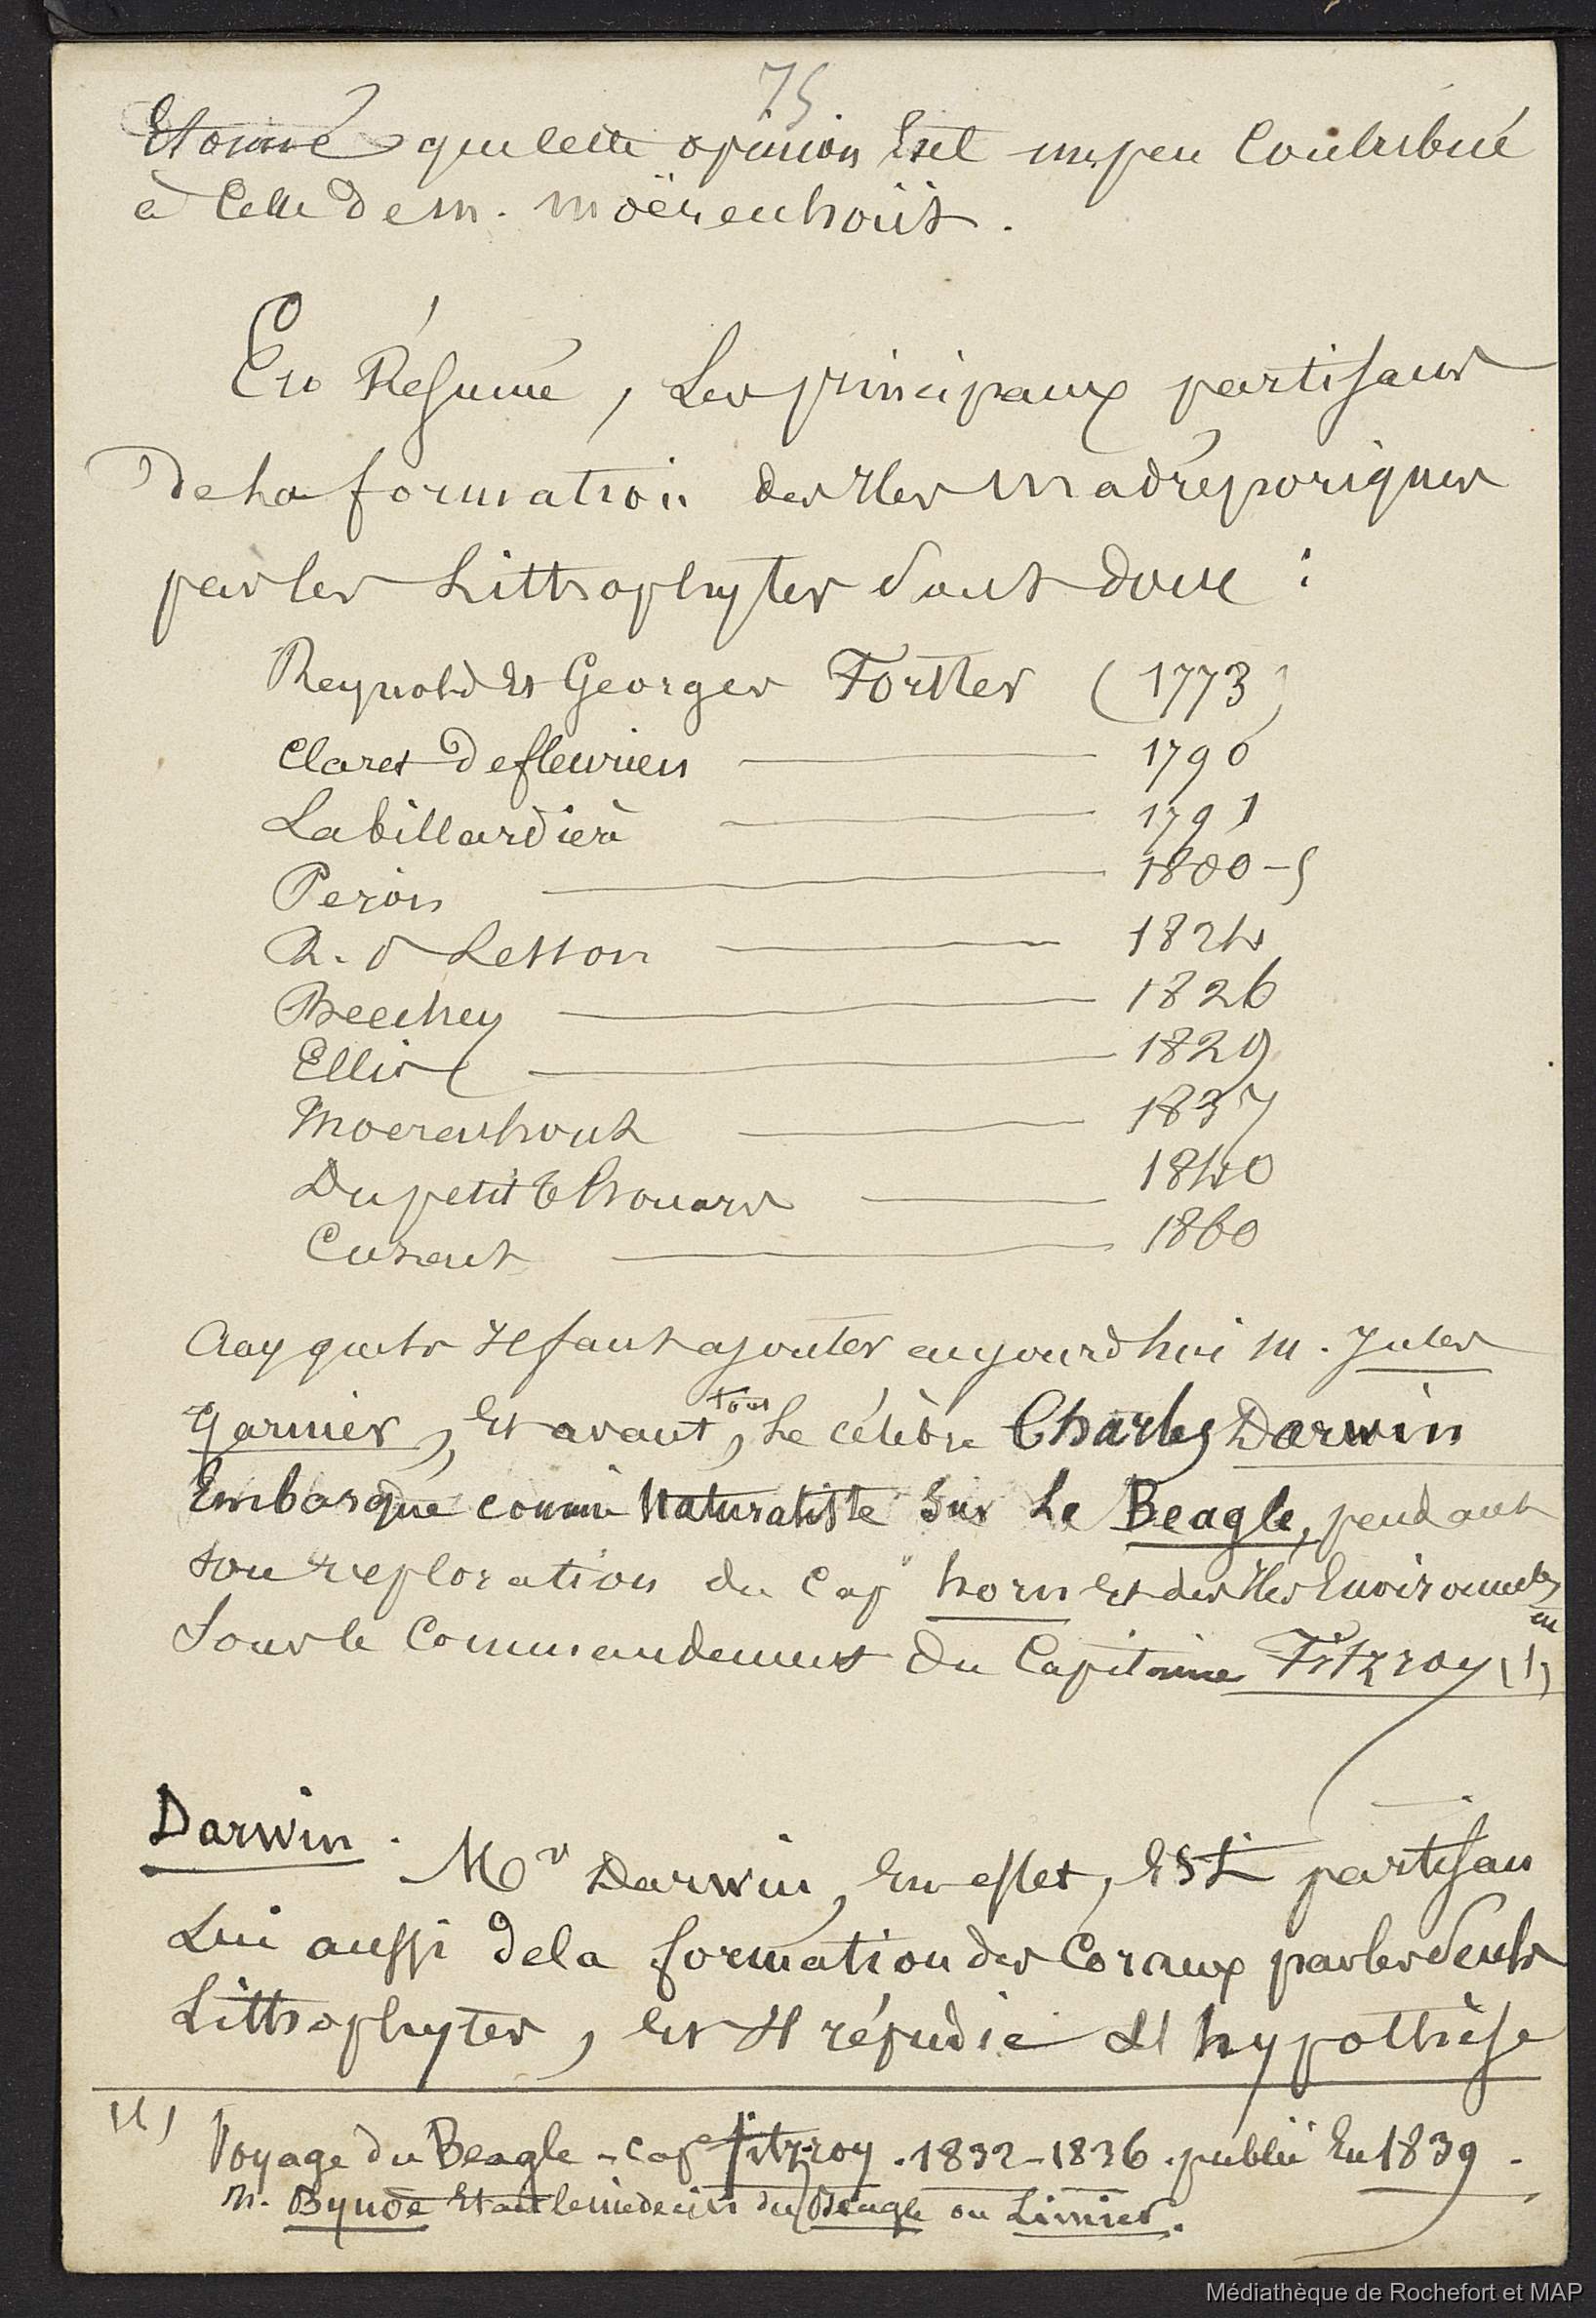 75
Etonné que cette opinion Eut un peu Contribué
à Celle de m. moërenhoüt.
En Résumé, Les principaux partisans
De La formation des Iles madréporiques
par les Litthophytes Sont donc :
Reynold Et Georges Forster (1773)
Claret De fleurieu 1790
Labillardière 1791
Peron 1800-5
R. P Lesson 1824
Beechey 1826
Ellis 1829
Moerenhout 1837
Du petit Thouars 1840
Cuzent 1860
Auxquels Il faut ajouter aujourdhui M. Jules
Garnier, Et avant tout, Le célèbre Charles Darwin
Embarqué comme Naturaliste Sur Le Beagle, pendant
son exploration du Cap horn Et des Iles Environnantes
Sous le Commandement du Capitaine Fitzroy (1)
en
Darwin. Mr Darwin, En effet, Est partisan
Lui aussi de la formation des Coraux par les Seuls
Litthophytes, Et Il répudie L'hypothèse
(1) Voyage du Beagle - Cap e fitzroy. 1832-1836. publié En 1839.
M. Bynoe Etait le médecin du Beagle ou Limier.
Médiathèque de Rochefort et MAP